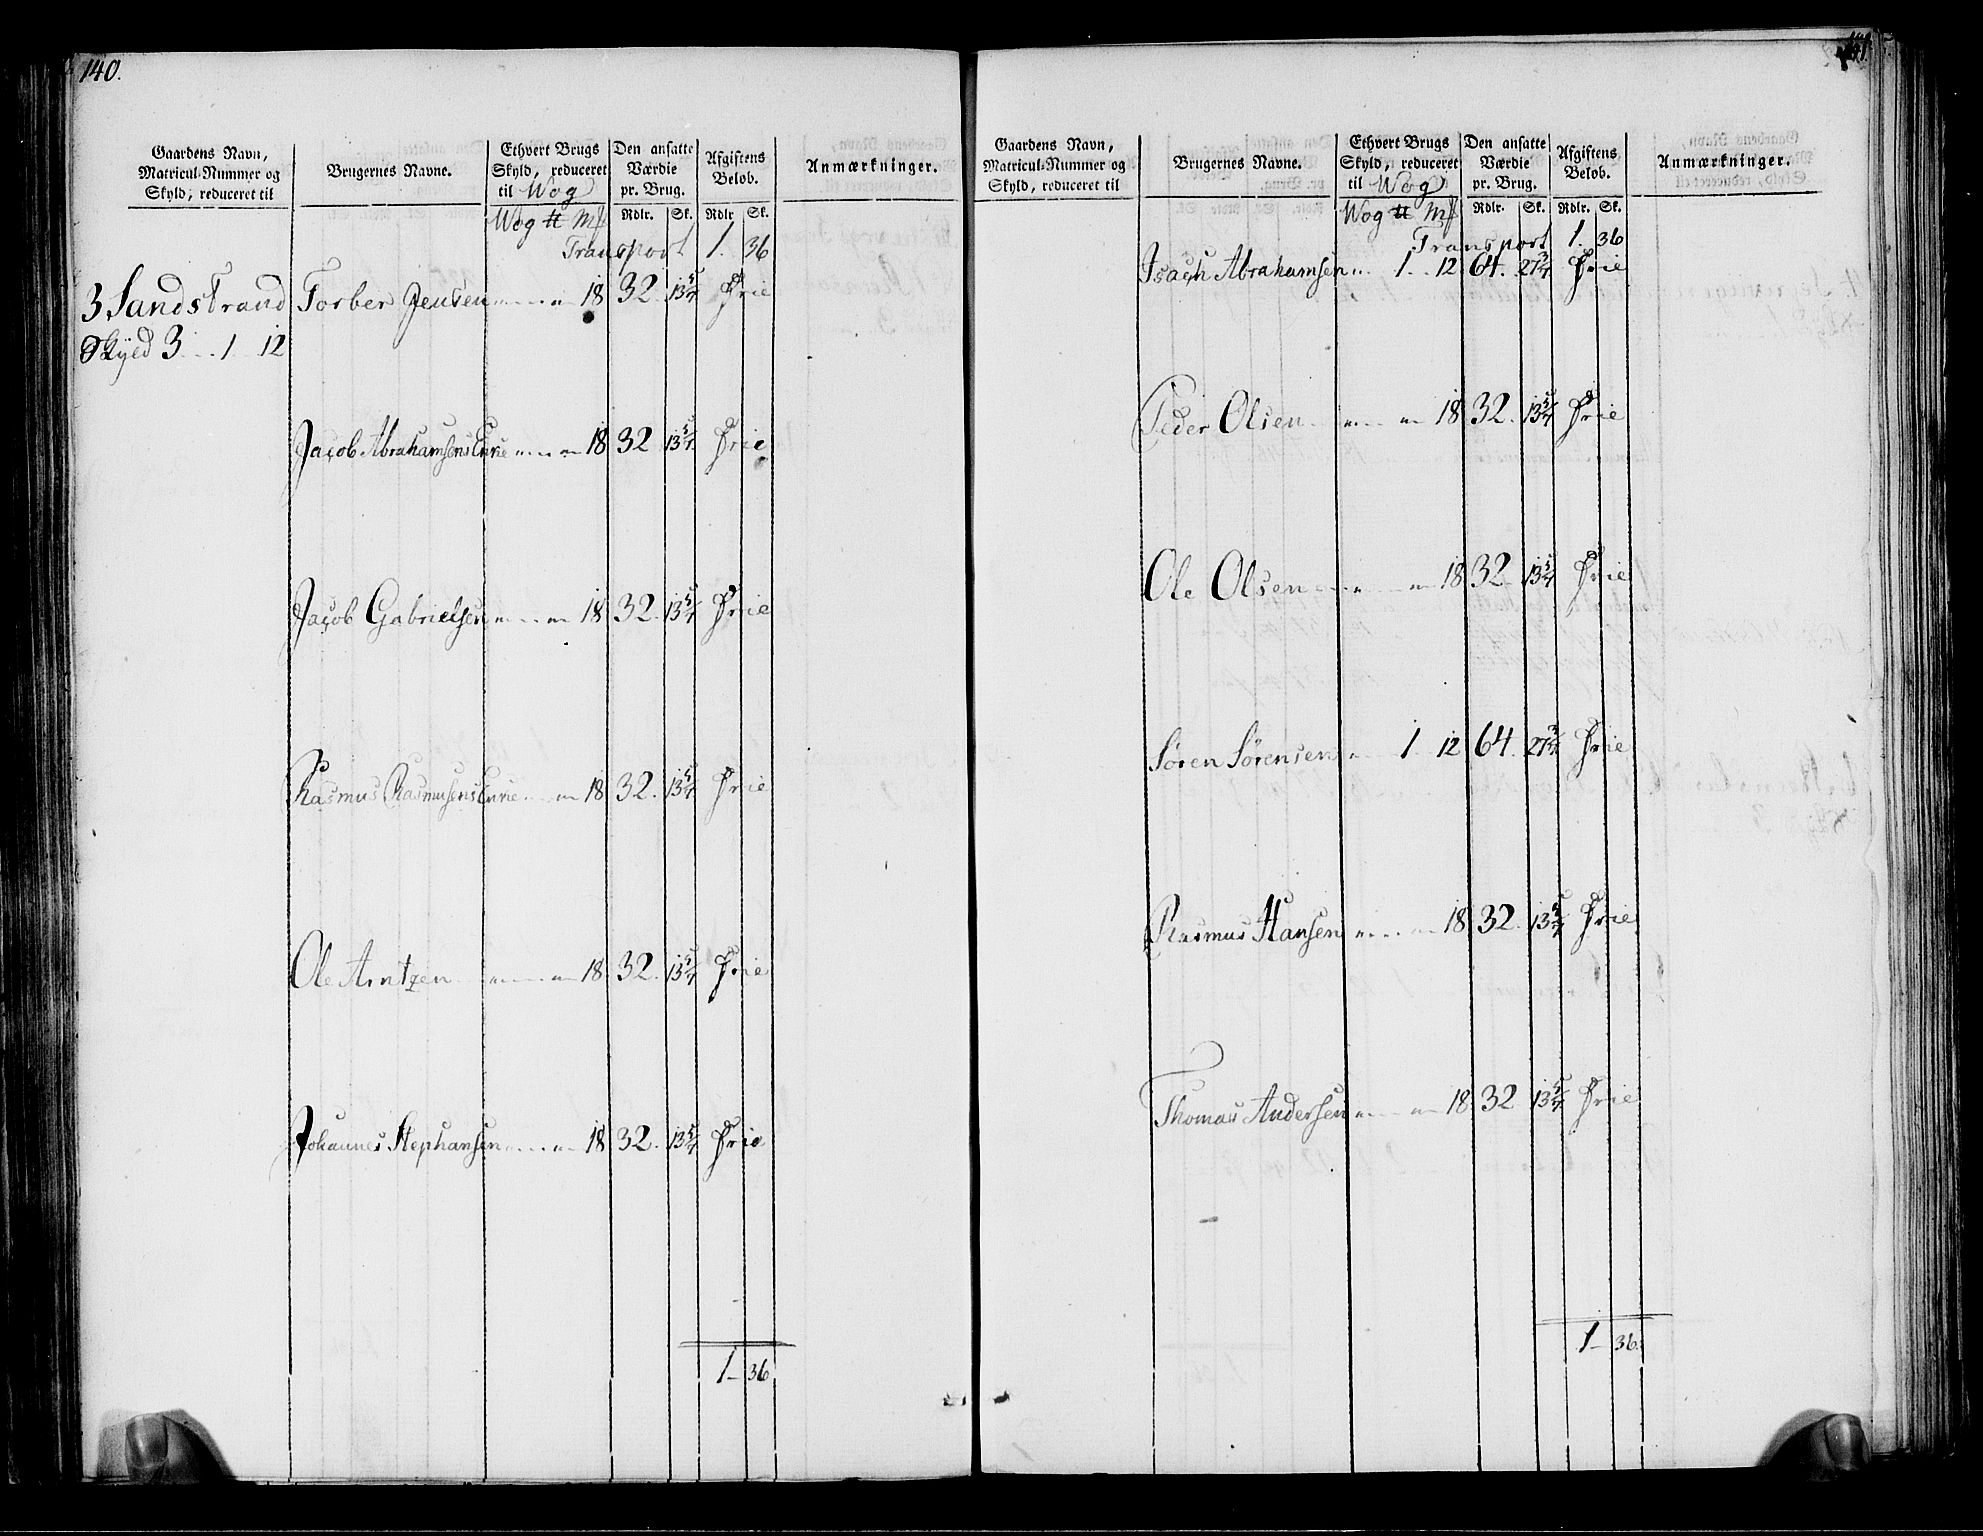 140.
Gaardens Navn, Matricul-Nummer og Skyld, reduceret til
Brugernes Navne.
Ethvert Brugs Skyld, reduceret til Wog
Den ansatte Værdie pr. Brug.
Afgiftens Beløb.
Anmærkninger.
Wog ℔ Mk Rdlr. Sk. Rdlr Sk.
Transport 1. 36
3 Sandstrand Torber Jensen 18 32. 13 5/7 Frie
Skyld 3 . . 1 12
Jacob Abrahamsens Enke 18 32. 13 5/7 Frie
Jacob Gabrielsen 18 32. 13 5/7 Frie
Rasmus Rasmusens Enke 18 32. 13 5/7 Frie
Ole Arntzen 18 32. 13 5/7 Frie
Johannes Stephansen 18 32. 13 5/7 Frie
1 - 36
141.
Gaardens Navn, Matricul-Nummer og Skyld, reduceret til
Brugernes Navne.
Ethvert Brugs Skyld, reduceret til Wog
Den ansatte Værdie pr. Brug.
Afgiftens Beløb.
Anmærkninger.
Wog ℔ Mk Rdlr. Sk. Rdlr. Sk.
Transport 1. 36
Isach Abrahamsen 1 . 12 64. 27 3/7 Frie
Peder Olsen 18 32. 13 5/7 Frie
Ole Olsen 18 32. 13 5/7 Frie
Søren Sørensen 1 . 12 64. 27 3/7 Frie
Rasmus Hansen 18 32. 13 5/7 Frie
Thomas Andersen 18 32 13 5/7 Frie
1 - 36.